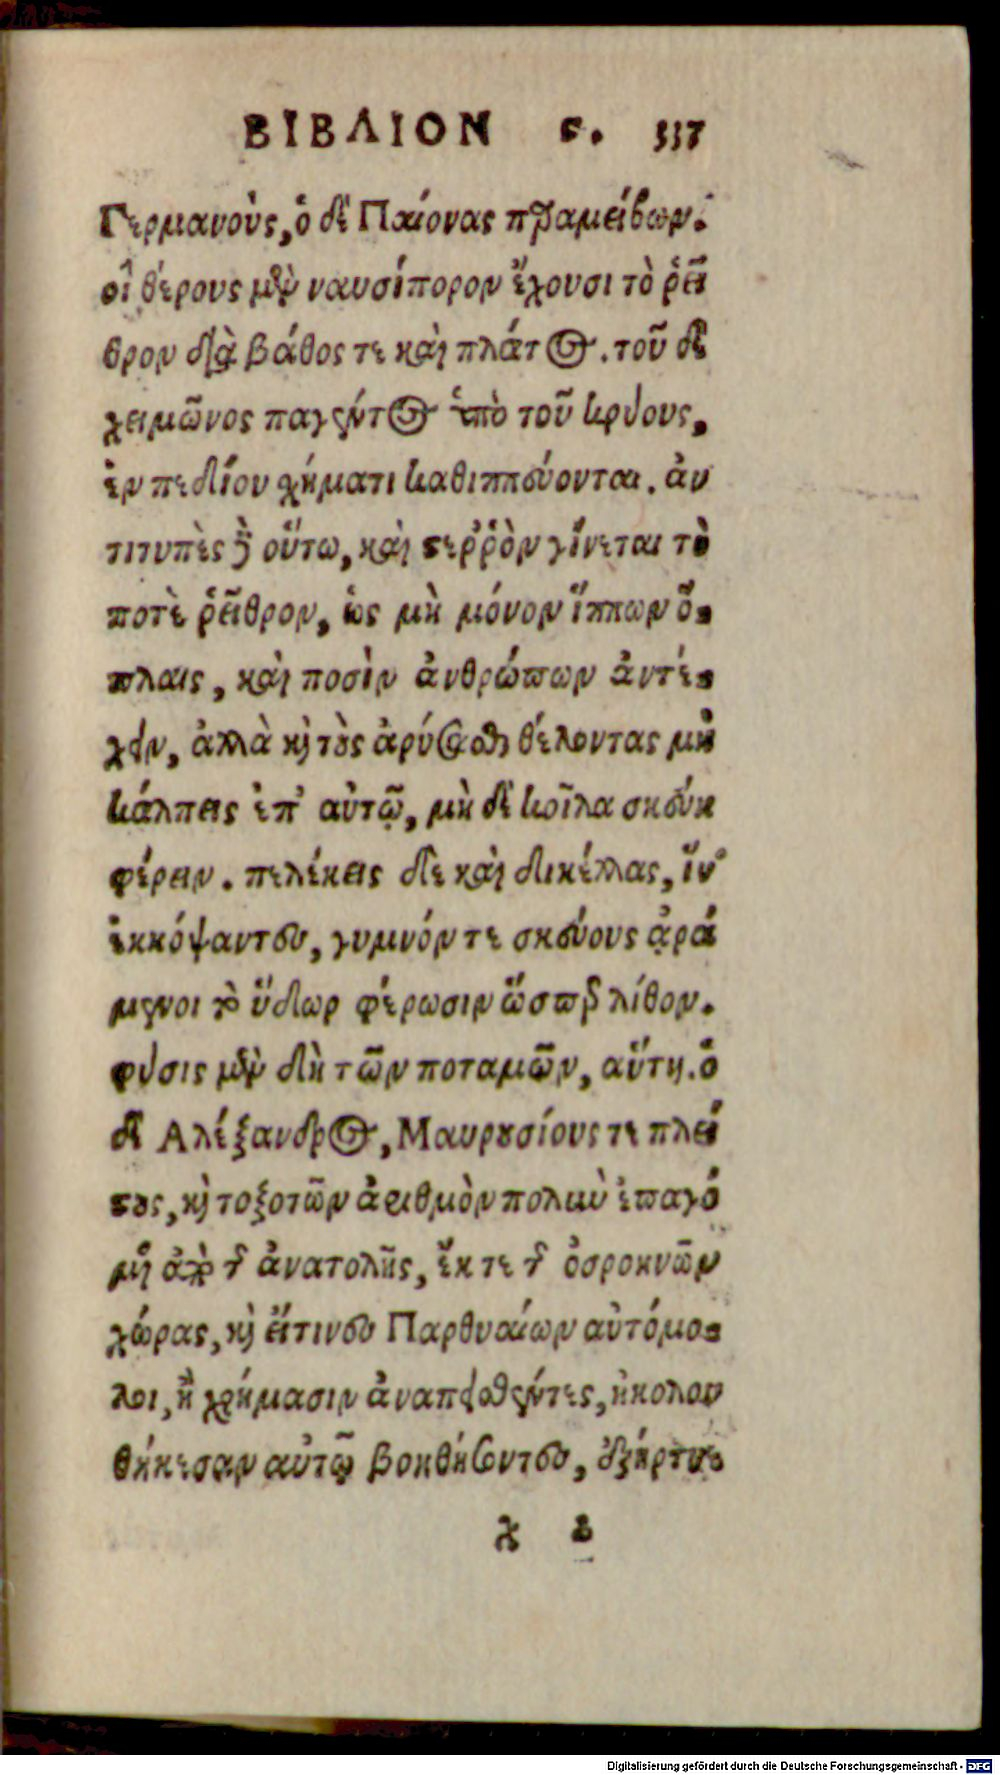 ΒΙΒΛΙΟΝ ϛ. 337
Γερμανοὺς, ὁ δὲ Παίονας παραμείβων.
οἳ θέρους μὲν ναυσίπορον ἔχουσι τὸ ῥεῖ
θρον διὰ βάθος τε καὶ πλάτος. τοῦ δὲ
χειμῶνος παγέντος ὑπὸ τοῦ κρύους,
ἐν πεδίου χήματι καθιππεύονται. ἀν
τιτυπὲς δὲ οὕτω, καὶ στερρὸν γίνεται τὸ
ποτὲ ῥεῖθρον, ὡς μὴ μόνον ἵππων ὁ-
πλαις, καὶ ποσὶν ἀνθρώπων ἀντέ-
χειν, ἀλλὰ καὶ τοὺς ἀρύσασθαι θέλοντας μὴ
κάλπεις ἐπ' αὐτῷ, μὴ δὲ κοῖλα σκεύη
φέρειν. πελέκεις δὲ καὶ δικέλλας, ἵν'
ἐκκόψαντες, γυμνόν τε σκεύους ἀρά
μενοι τὸ ὕδωρ φέρωσιν ὥσπερ λίθον.
φύσις μὲν δὴ τῶν ποταμῶν, αὕτη. ὁ
δὲ Αλέξανδρος, Μαυρουσίους τε πλεί
στους, καὶ τοξοτῶν ἀριθμὸν πολὺν ἐπαγό
μενος ἀπὸ τῆς ἀνατολῆς, ἔκ τε τῆς ὀσροηνῶν
χώρας, καὶ εἴτινες Παρθυαίων αὐτόμο-
λοι, ἢ χρήμασιν ἀναπεισθέντες, ἠκολου
θήκεσαν αὐτῷ βοηθήσοντες, ἐξήρτυε
χ 2
Digitalisierung gefördert durch die Deutsche Forschungsgemeinschaft - DFG